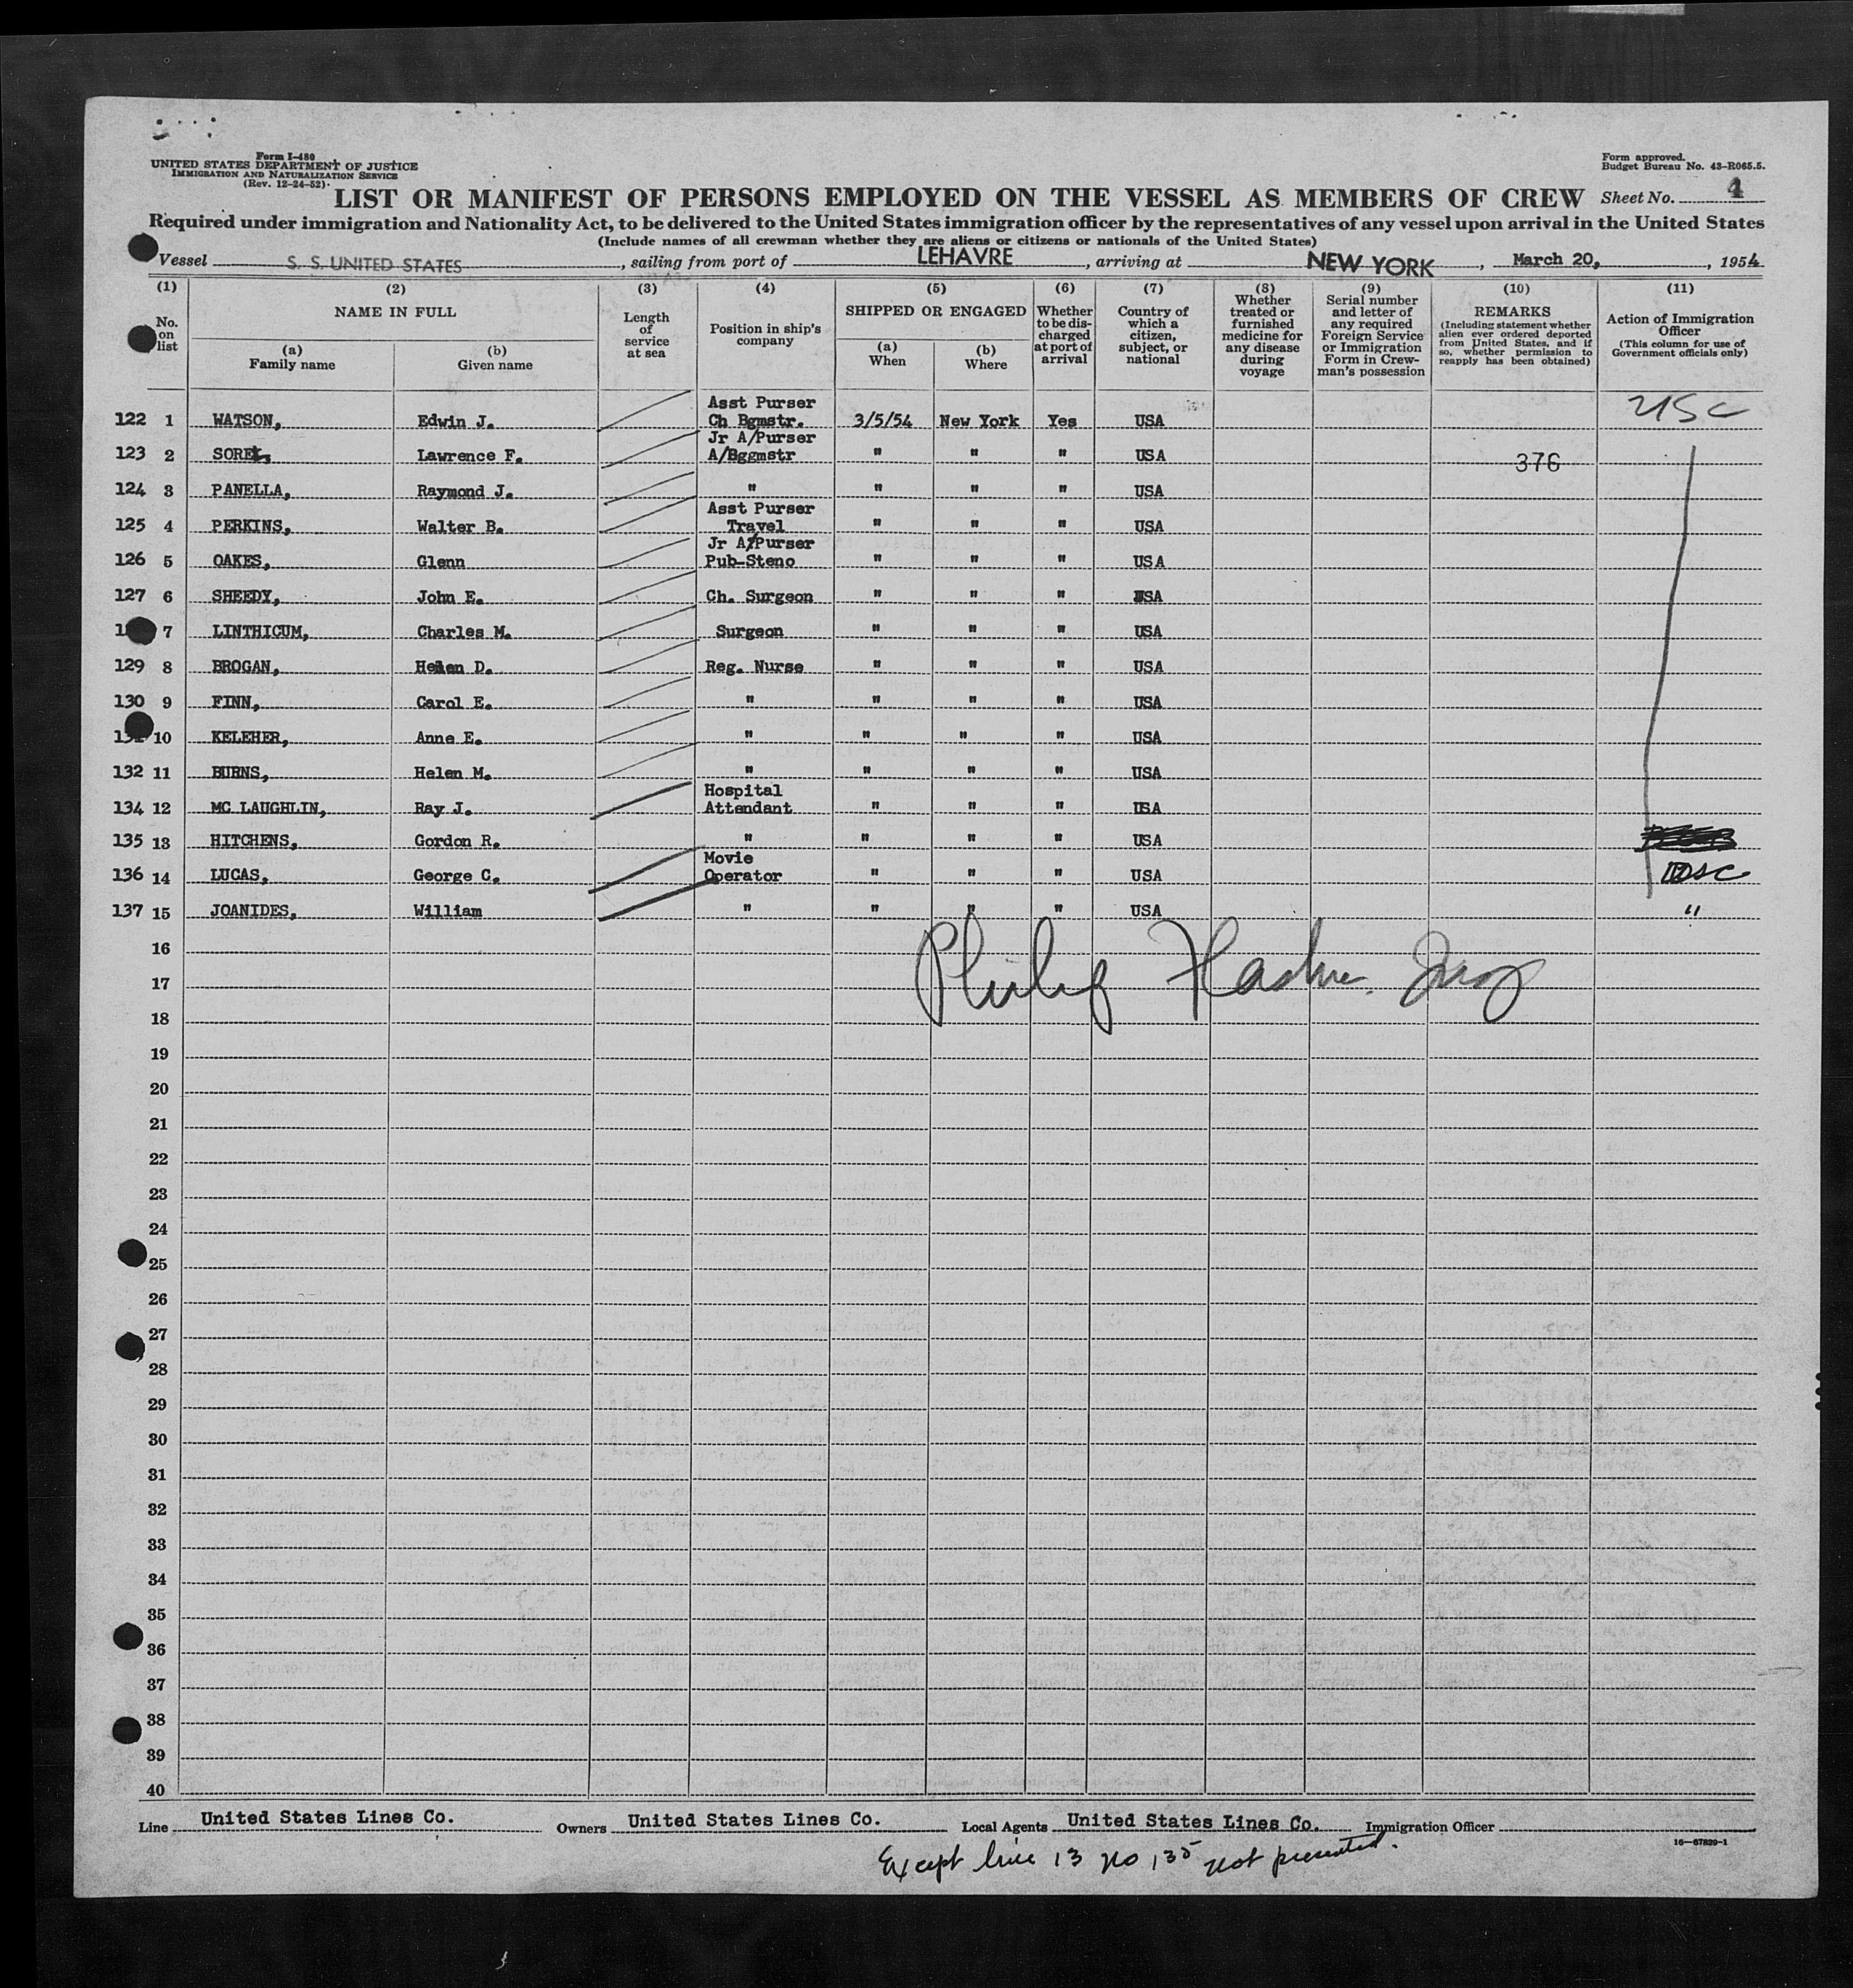 Form I-480
UNITED STATES DEPARTMENT OF JUSTICE
IMMIGRATION AND NATURALIZATION SERVICE
(Rev. 12-24-52)
Form approved.
Budget Bureau No. 43-R065.5.
LIST OR MANIFEST OF PERSONS EMPLOYED ON THE VESSEL AS MEMBERS OF CREW Sheet No. 4
Required under immigration and Nationality Act, to be delivered to the United States immigration officer by the representatives of any vessel upon arrival in the United States
(Include names of all crewman whether they are aliens or citizens or nationals of the United States)
Vessel S. S. UNITED STATES, sailing from port of LEHAVRE, arriving at NEW YORK, March 20, 1954
(1) (2) (3) (4) (5) (6) (7) (8) (9) (10) (11)
No. on list
NAME IN FULL
(a) Family name
(b) Given name
Length of service at sea
Position in ship's company
SHIPPED OR ENGAGED
(a) When
(b) Where
Whether to be discharged at port of arrival
Country of which a citizen, subject, or national
Whether treated or furnished medicine for any disease during voyage
Serial number and letter of any required Foreign Service or Immigration Form in Crewman's possession
REMARKS
(Including statement whether alien ever ordered deported from United States, and if so, whether permission to reapply has been obtained)
Action of Immigration Officer
(This column for use of Government officials only)
122 1 WATSON, Edwin J. Asst Purser Ch Bgmstr. 3/5/54 New York Yes USA USC
123 2 Lawrence F. Jr A/Purser A/Bggmstr " " " USA 376
124 3 PANELLA, Raymond J. " " " " USA
125 4 PERKINS, Walter B. Asst Purser Travel " " " USA
126 5 OAKES, Glenn Jr A/Purser Pub-Steno " " " USA
127 6 SHEEDY, John E. Ch. Surgeon " " " USA
7 LINTHICUM, Charles M. Surgeon " " " USA
129 8 BROGAN, Helen D. Reg. Nurse " " " USA
130 9 FINN, Carol E. " " " " USA
131 10 KELEHER, Anne E. " " " " USA
132 11 BURNS, Helen M. " " " " USA
134 12 MC LAUGHLIN, Ray J. Hospital Attendant " " " USA
135 13 HITCHENS, Gordon R. " " " " USA
136 14 LUCAS, George C. Movie Operator " " " USA USC
137 15 JOANIDES, William " " " " USA "
16
Philip
17
18
19
20
21
22
23
24
25
26
27
28
29
30
31
32
33
34
35
36
37
38
39
40
Line United States Lines Co. Owners United States Lines Co. Local Agents United States Lines Co. Immigration Officer
16—67829-1
Except line 13 no 135 not presented.